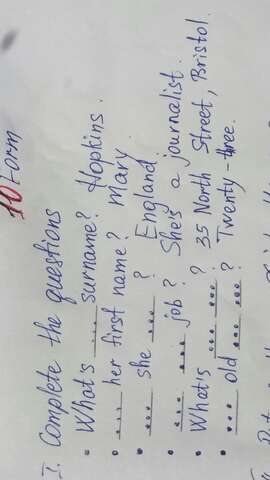 10 Form
I. Complete the questions
• What's ... surname? Hopkins.
• ... her first name? Mary
• ... she ... ? England
• ... ... job? She's a journalist.
• What's ... ... ? 35 North Street, Bristol.
• ... old ... ... ? Twenty-three.